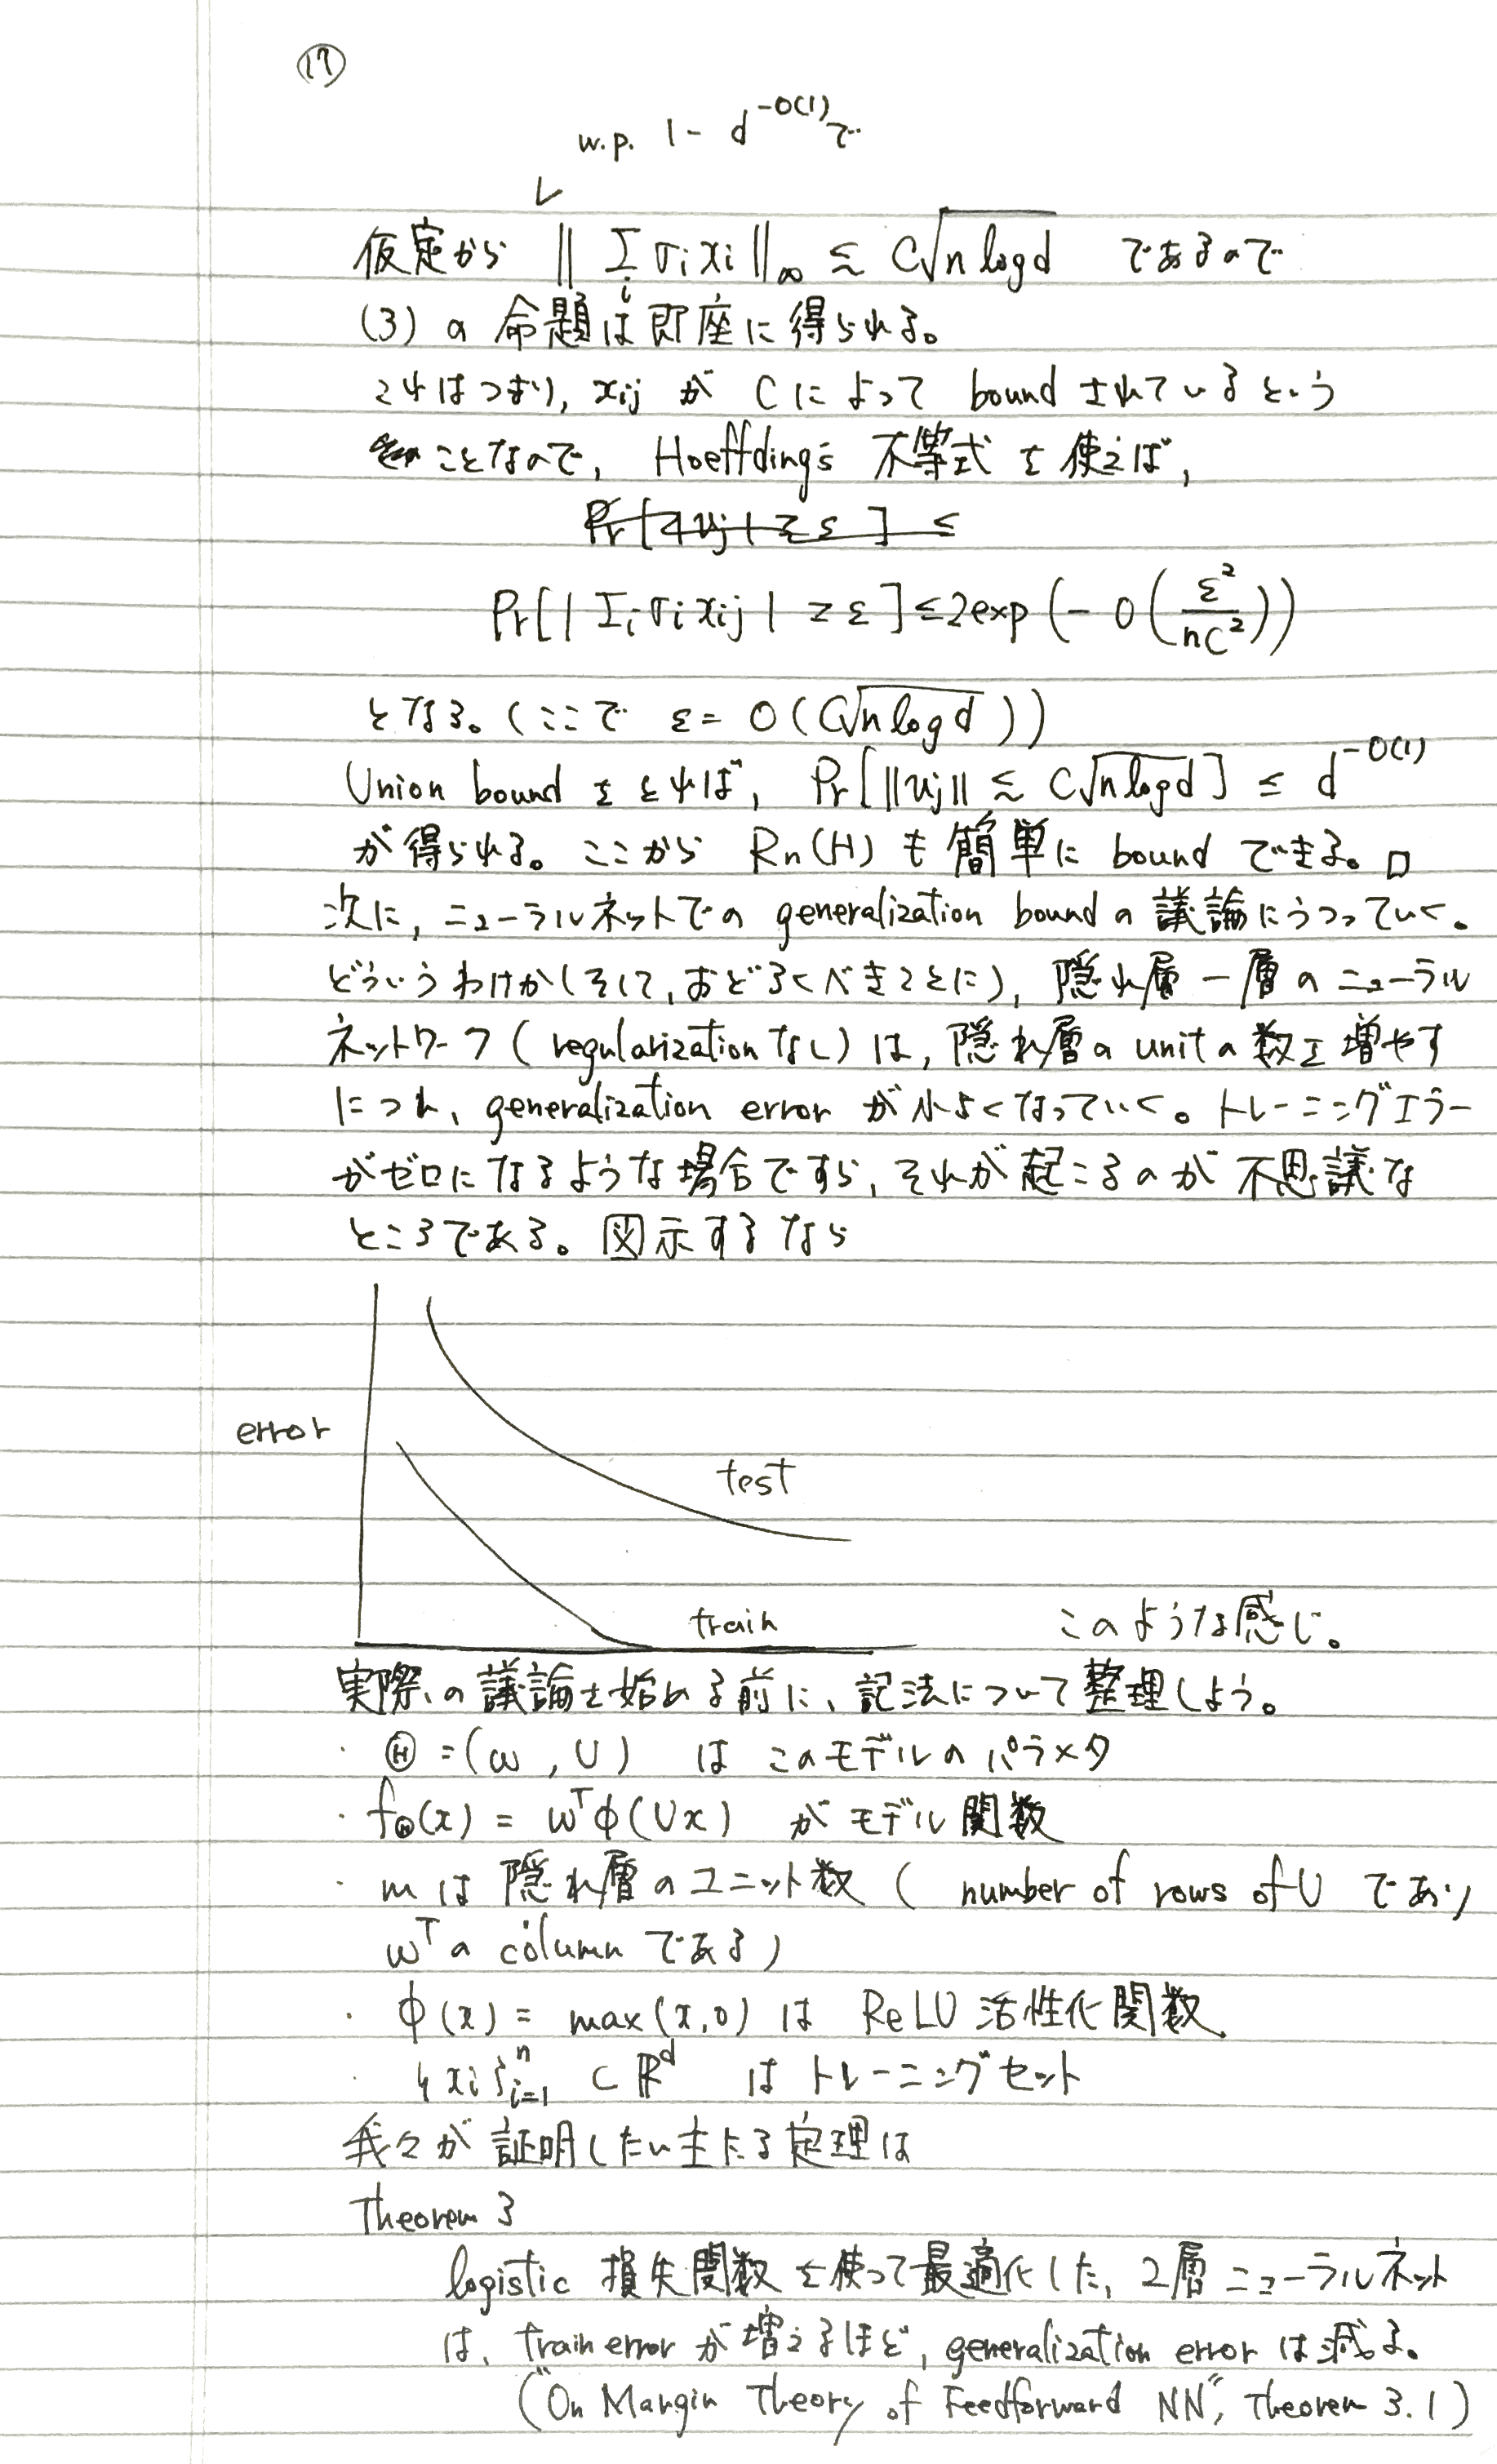 ⑰
w.p. 1 - d^{-O(1)} で
仮定から ‖ Σ_i σi xi ‖∞ ≲ C√(n log d) であるので
(3) の命題は即座に得られる。
これはつまり, xij が C によって bound されているという
ことなので, Hoeffding's 不等式を使えば,
Pr[|vj| ≥ ε] ≤
Pr[| Σi σi xij | ≥ ε] ≤ 2exp(- O(ε²/nC²))
となる。(ここで ε = O(C√(n log d)))
Union bound をとれば, Pr[‖vj‖ ≲ C√(n log d)] ≤ d^{-O(1)}
が得られる。ここから Rn(H) も簡単に bound できる。□
次に, ニューラルネットでの generalization bound の議論にうつっていく。
どういうわけか(そして, おどろくべきことに), 隠れ層一層のニューラル
ネットワーク (regularization なし) は, 隠れ層の unit の数を増やす
につれ, generalization error が小さくなっていく。トレーニングエラー
がゼロになるような場合ですら, それが起こるのが不思議な
ところである。図示するなら
error
test
train
このような感じ。
実際の議論を始める前に、記法について整理しよう。
・ Θ = (w, U) はこのモデルのパラメタ
・ fΘ(x) = w^T φ(Ux) がモデル関数
・ m は隠れ層のユニット数 ( number of rows of U であり
w^T の column である)
・ φ(x) = max(x, 0) は ReLU 活性化関数
・ {xi}^n_{i=1} ⊂ ℝ^d はトレーニングセット
我々が証明したい主たる定理は
Theorem 3
logistic 損失関数を使って最適化した, 2層ニューラルネット
は, train error が増えるほど, generalization error は減る。
("On Margin Theory of Feedforward NN", Theorem 3.1)